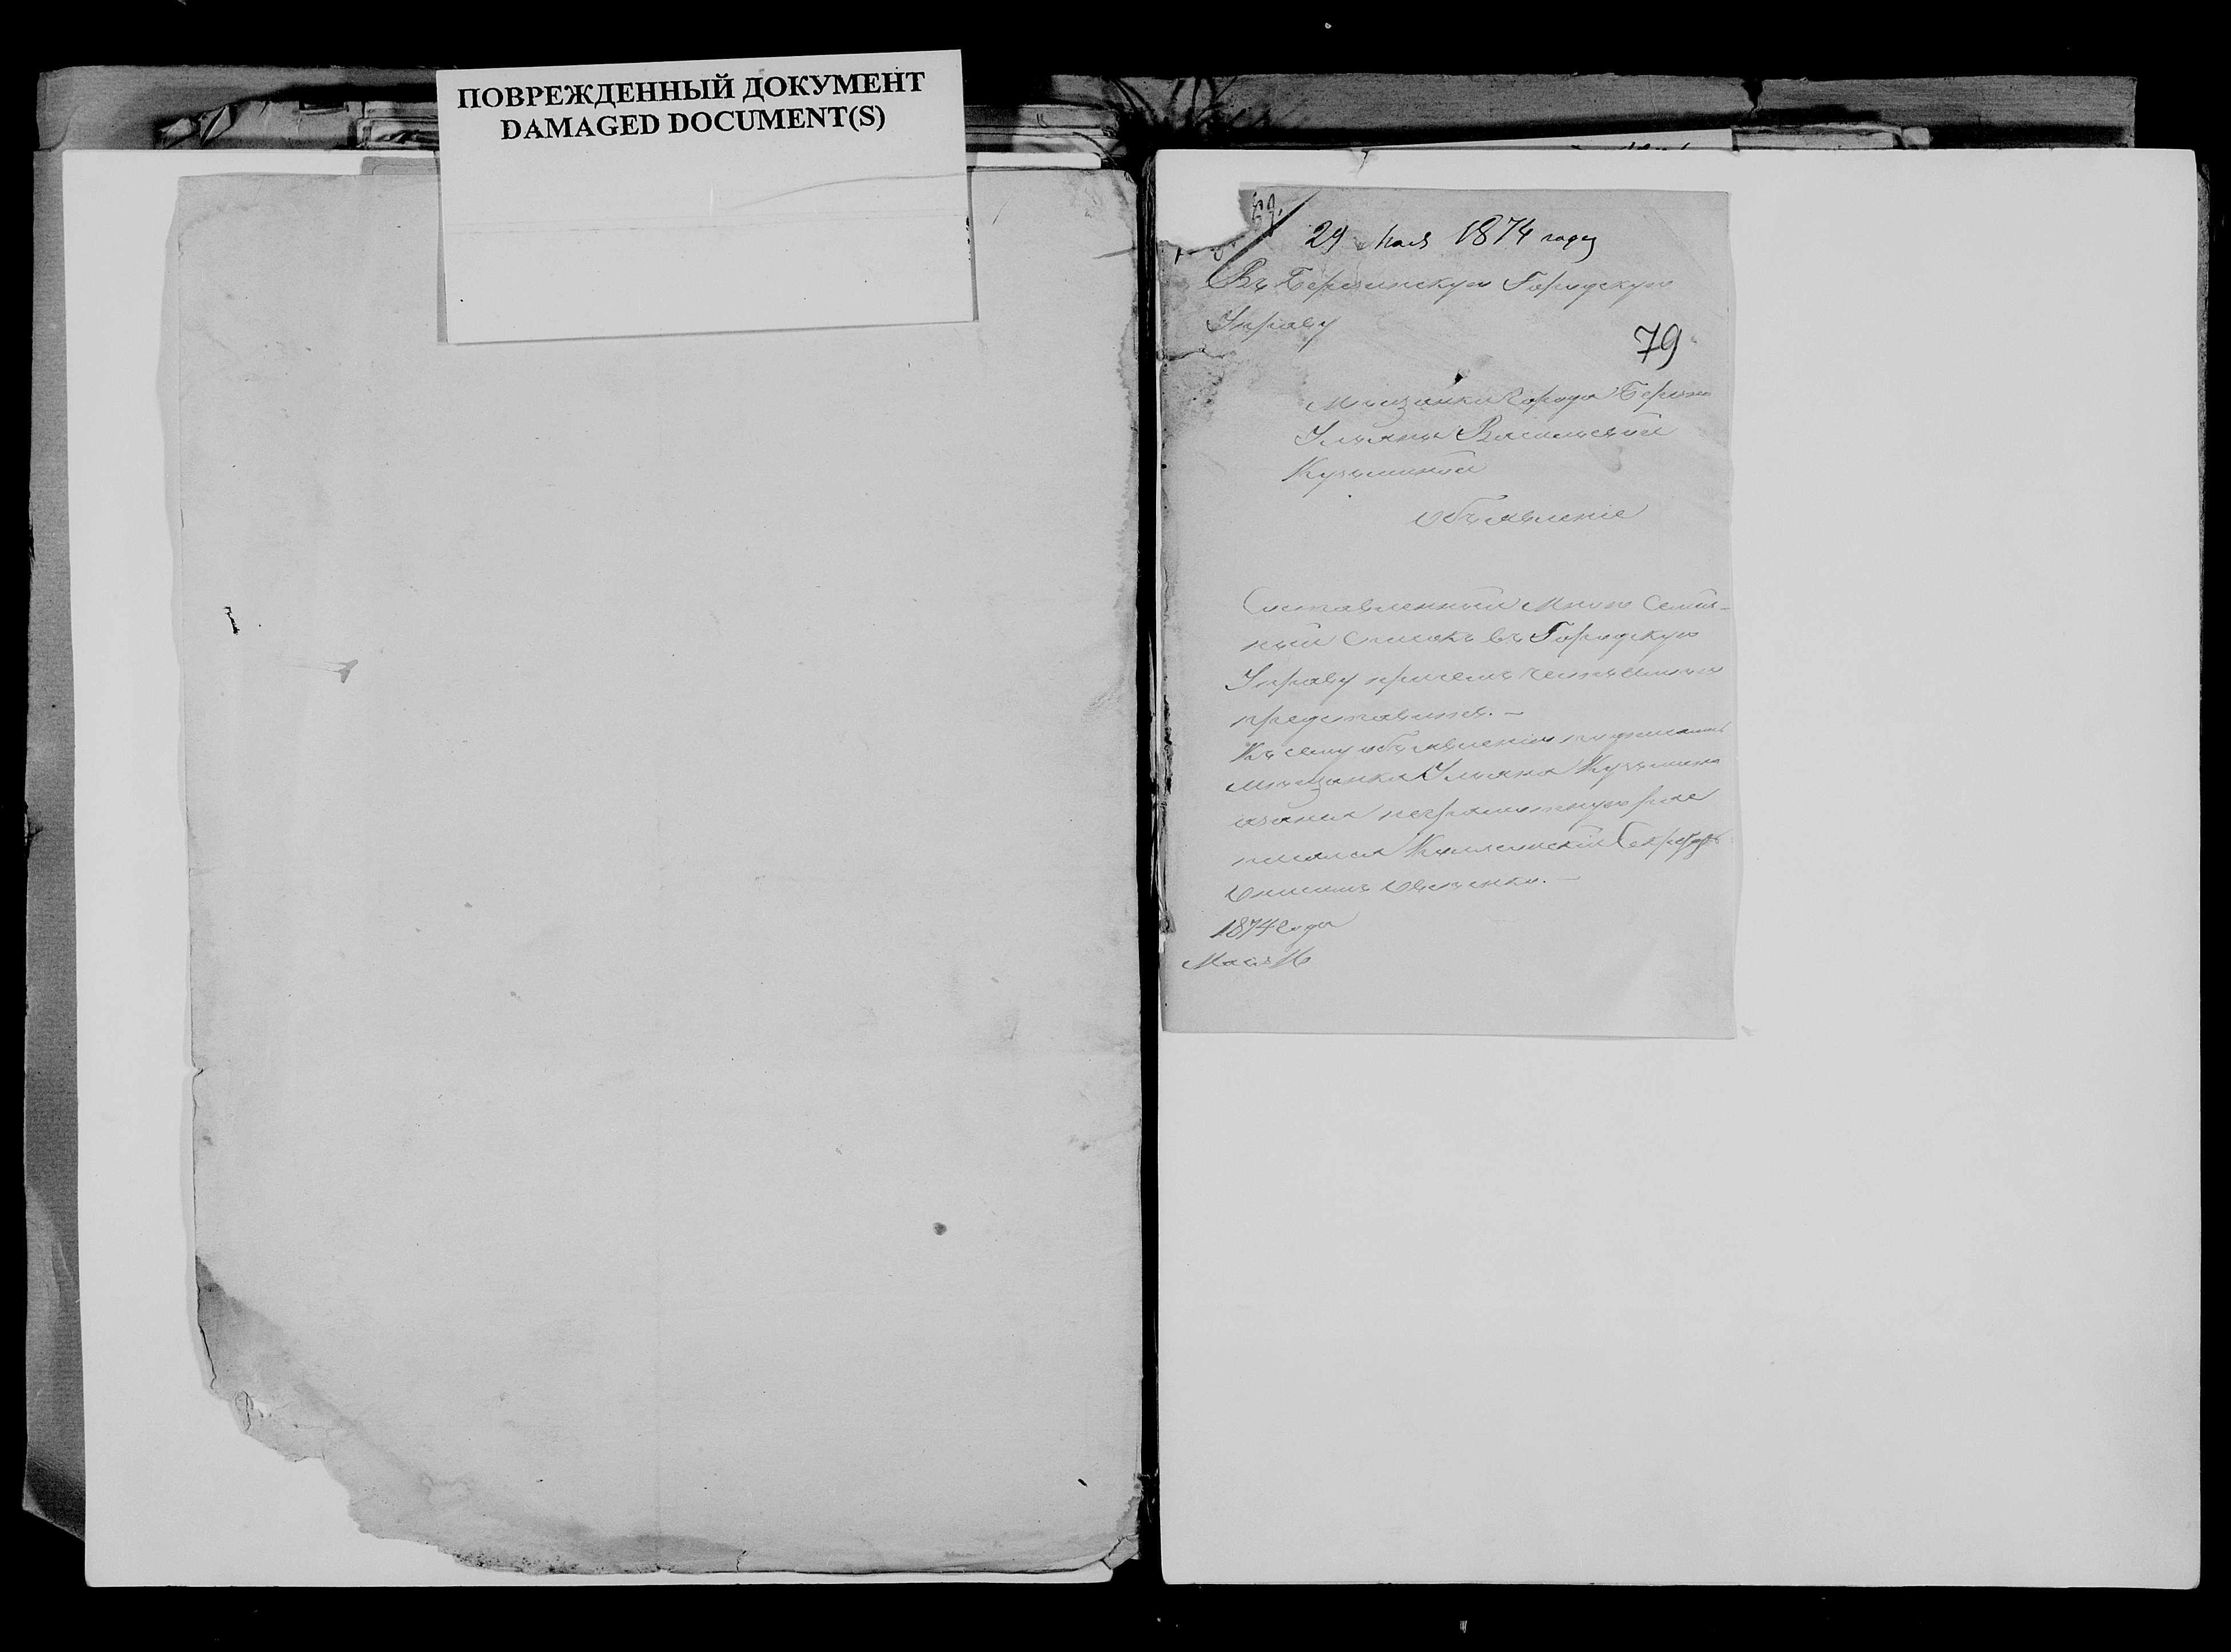 ПОВРЕЖДЕННЫЙ ДОКУМЕНТ
DAMAGED DOCUMENT(S)
29 Мая 1874 года
Въ Березинскую Городскую
Управу
79
Мѣщанки города Березно
Ульяны Васильевой
Кузьминой
Объявленіе
Составленный мною Семей-
ный Списокъ въ Городскую
Управу при семъ честь имѣю
представить. —
Къ сему объявленію
мѣщанка Ульяна Кузьмина
а за нея неграмотную рос
писался Секретарь
1874 года
Мая